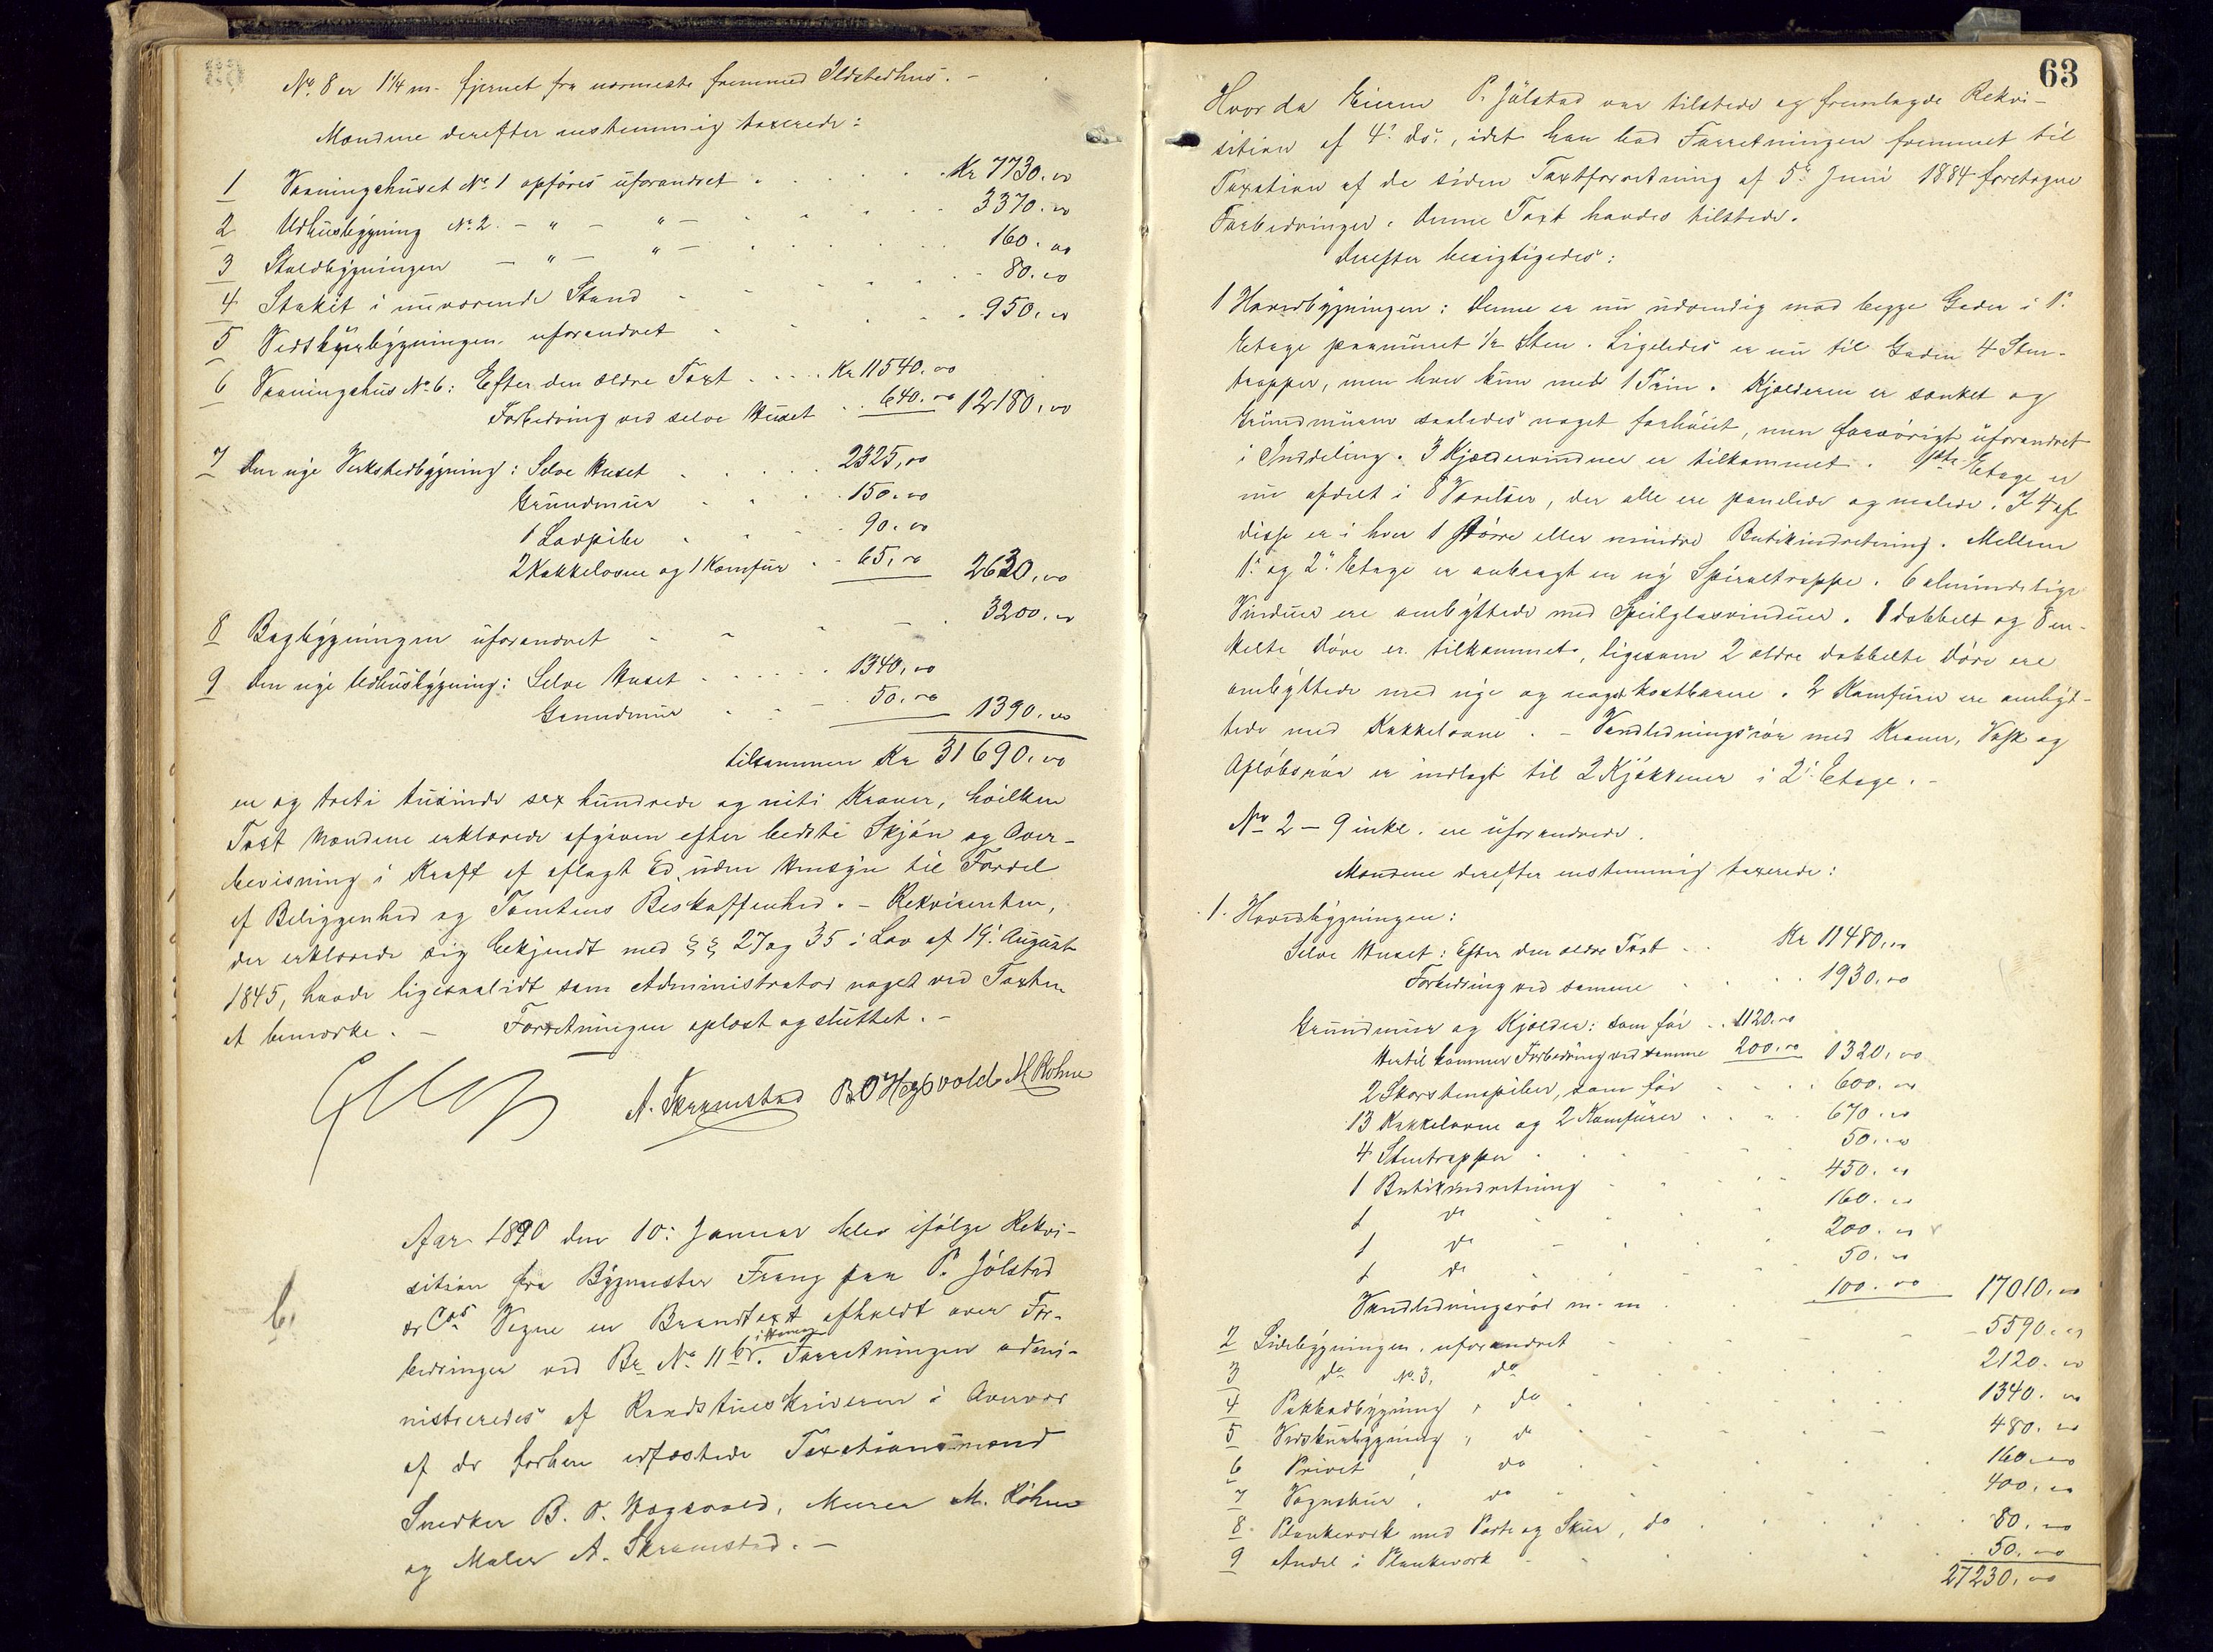 No. 8 er 1¼ m. fjernet fra nærmeste fremmed Ildstedhus. –
Mændene derefter enstemmig taxerede:
1 Vaaningshuset No. 1 opføres uforandret . . . . Kr 7730.00
2 Udhusbygning No. 2. – " – " – . . . 3370.00
3 Staldbygningen – " – " – . . . 160.00
4 Stakit i nuværende Stand . . . . 80.00
5 Vedskurbygningen uforandret . . . . 950.00
6 Vaaningshus No. 6: Efter den ældre Taxt . . . . Kr 11540.00
Forbedring ved selve Huset . . 640.00 12180,00
7 Den nye Verkstedbygning: Selve Huset . . . 2325,00
Grundmur . . . 150.00
1 Lavpibe . . . 90.00
2 Kakkelovne og 1 Komfur . . 65,00 2630,00
8 Bagbygningen uforandret . . . . 3200.00
9 Den nye Udhusbygning: Selve Huset . . . . . 1340,00
Grundmur . . . 50.00 1390.00
tilsammen Kr 31690.00
en og treti tusinde sex hundrede og niti Kroner, hvilken
Taxt Mændene erklærede afgiven efter bedste Skjøn og Over-
bevisning i Kraft af aflagt Ed, uden Hensyn til Fordel
af Beliggenhed og Tomtens Beskaffenhed. – Rekvirenten,
der erklærede sig bekjendt med §§ 27 og 35 i Lov af 19. August
1845, havde ligesaalidt som Administrator noget ved Taxten
at bemærke. – Forretningen oplæst og sluttet. –
A. Skramstad B. O. Hogsvold M Røhne
Aar 1890 den 10: Januar blev ifølge Rekvi-
sition fra Bygmester Frang paa P. Jølstad
& Cos Vegne en Brandtaxt afholdt over For-
bedringer ved Br. No. 11 b i Hamar. Forretningen admi-
nistreredes af Raadstueskriveren i Overvær
af de forhen edfæstede Taxationsmænd
Snedker B. O. Hogsvold, Murer M. Røhne
og Maler A. Skramstad. –
6.
63
Hvor da Eieren P. Jølstad var tilstede og fremlagde Rekvi-
sition af 4. ds., idet han bad Forretningen fremmet til
Taxation af de siden Taxtforretning af 5. Juni 1884 foretagne
Forbedringer. Denne Taxt havdes tilstede.
Derefter besigtigedes:
1 Hovedbygningen: Denne er nu udvendig mod begge Gader i 1.
Etage paamuret ½ Sten. Ligeledes er nu til Gaden 4 Sten-
trapper, men hver kun med 1 Trin. Kjælderen er sænket og
Grundmuren saaledes noget forhøiet, men forøvrigt uforandret
i Inddeling. 3 Kjældervinduer er tilkommet. 1ste Etage er
nu afdelt i 8 Værelser, der alle ere panelede og malede. I 4 af
disse er i hver 1 større eller mindre Butikindretning. Mellem
1. og 2. Etage er anbragt en ny Spiraltrappe. 6 almindelige
Vinduer ere ombyttede med Speilglasvinduer. 1 dobbelt og 8 en-
kelte Døre er tilkommet, ligesom 2 ældre dobbelte Døre ere
ombyttede med nye og noget kostbarere. 2 Komfurer ere ombyt-
tede med Kakkelovne. – Vandledningsrør med Kraner, Vask og
Afløbsrør er indlagt til 2 Kjøkkener i 2. Etage. –
No. 2 – 9 inkl. ere uforandrede.
Mændene derefter enstemmig taxerede:
1. Hovedbygningen:
Selve Huset: Efter den ældre Taxt . . . Kr 11480,00
Forbedring ved samme . . . . 1930.00
Grundmur og Kjælder: som før . . 1120.00
Hertil kommer Forbedring ved samme 200.00 1320,00
2 Skorstenspiber, som før . . . 600.00
13 Kakkelovne og 2 Komfurer . . . . 670.00
4 Stentrapper . . . . 50.00
1 Butikindretning . . . . 450.00
1 do . . . . 160.00
1 do . . . . 200.00
1 do . . . . 50.00
Vandledningsrør m. m. . . 100.00 17010,00
2 Sidebygningen, uforandret . . . . 5590.00
3 do No. 3, do . . . . 2120.00
4 Pakbodbygning, do . . . . 1340.00
5 Vedskurbygning, do . . . . 480.00
6 Privet, do . . . . 160.00
7 Vognskur, do . . . . 400.00
8. Plankeværk med Port og Skur, do . . . . 80.00
9 Andel i Plankeværk . . . . 50.00
27230.00